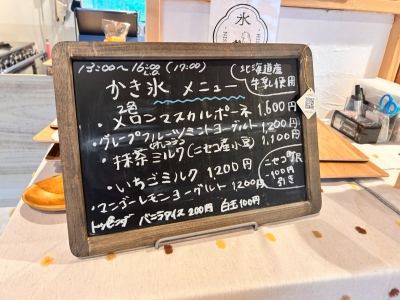 氷
13:00〜16:00 (17:00)
L.O
かき氷 メニュー
北海道産
牛乳使用
・2色メロンマスカルポーネ 1,600円
・グレープフルーツミントヨーグルト 1,200円
・抹茶ミルク(ニセコ産小豆) 1,100円
・いちごミルク 1200円
・マンゴーレモンヨーグルト 1200円
ニセコ町民
-100円
引き
トッピング バニラアイス 200円 白玉 100円